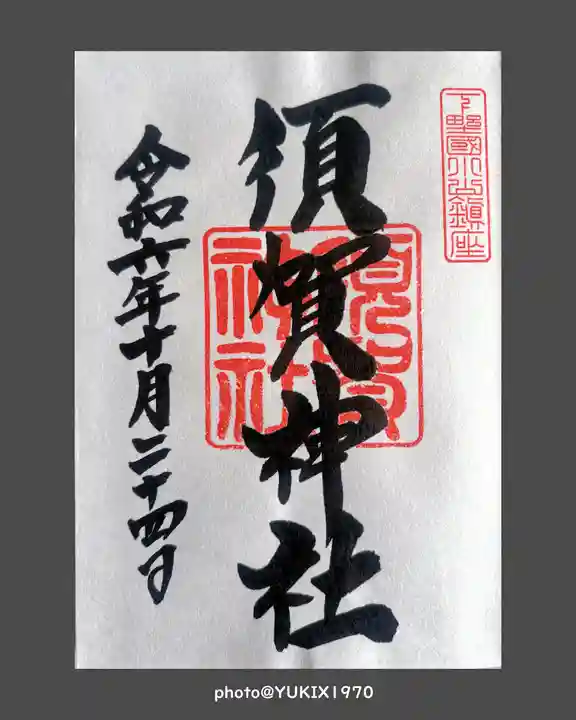 下野國小山鎮座
須賀神社
須賀神社
令和六年十月二十四日
photo@YUKIX1970